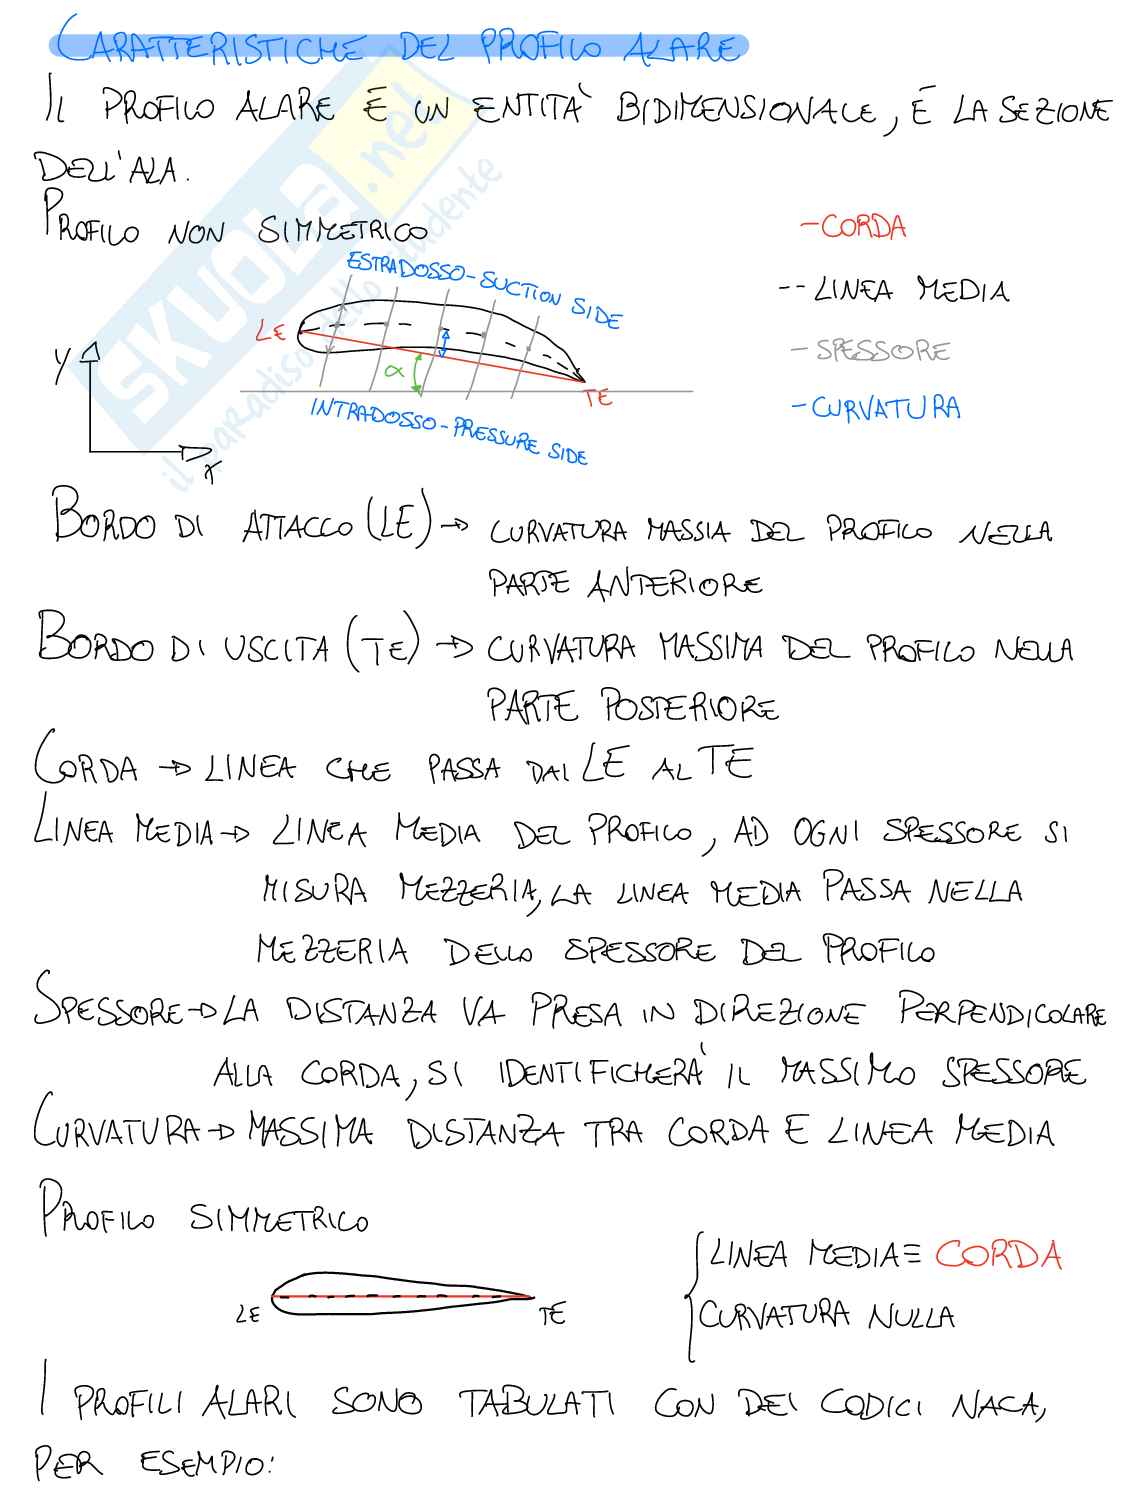 CARATTERISTICHE DEL PROFILO ALARE
IL PROFILO ALARE È UN ENTITÀ BIDIMENSIONALE, È LA SEZIONE
DELL'ALA.
PROFILO NON SIMMETRICO
- CORDA
-- LINEA MEDIA
- SPESSORE
- CURVATURA
ESTRADOSSO - SUCTION SIDE
LE
α
TE
INTRADOSSO - PRESSURE SIDE
Y
X
BORDO DI ATTACCO (LE) → CURVATURA MASSIA DEL PROFILO NELLA
PARTE ANTERIORE
BORDO DI USCITA (TE) → CURVATURA MASSIMA DEL PROFILO NELLA
PARTE POSTERIORE
CORDA → LINEA CHE PASSA DAL LE AL TE
LINEA MEDIA → LINEA MEDIA DEL PROFILO, AD OGNI SPESSORE SI
MISURA MEZZERIA, LA LINEA MEDIA PASSA NELLA
MEZZERIA DELLO SPESSORE DEL PROFILO
SPESSORE → LA DISTANZA VA PRESA IN DIREZIONE PERPENDICOLARE
ALLA CORDA, SI IDENTIFICHERÀ IL MASSIMO SPESSORE
CURVATURA → MASSIMA DISTANZA TRA CORDA E LINEA MEDIA
PROFILO SIMMETRICO
LE
TE
LINEA MEDIA ≡ CORDA
CURVATURA NULLA
I PROFILI ALARI SONO TABULATI CON DEI CODICI NACA,
PER ESEMPIO:
SKUOLA.net
il paradiso dello studente